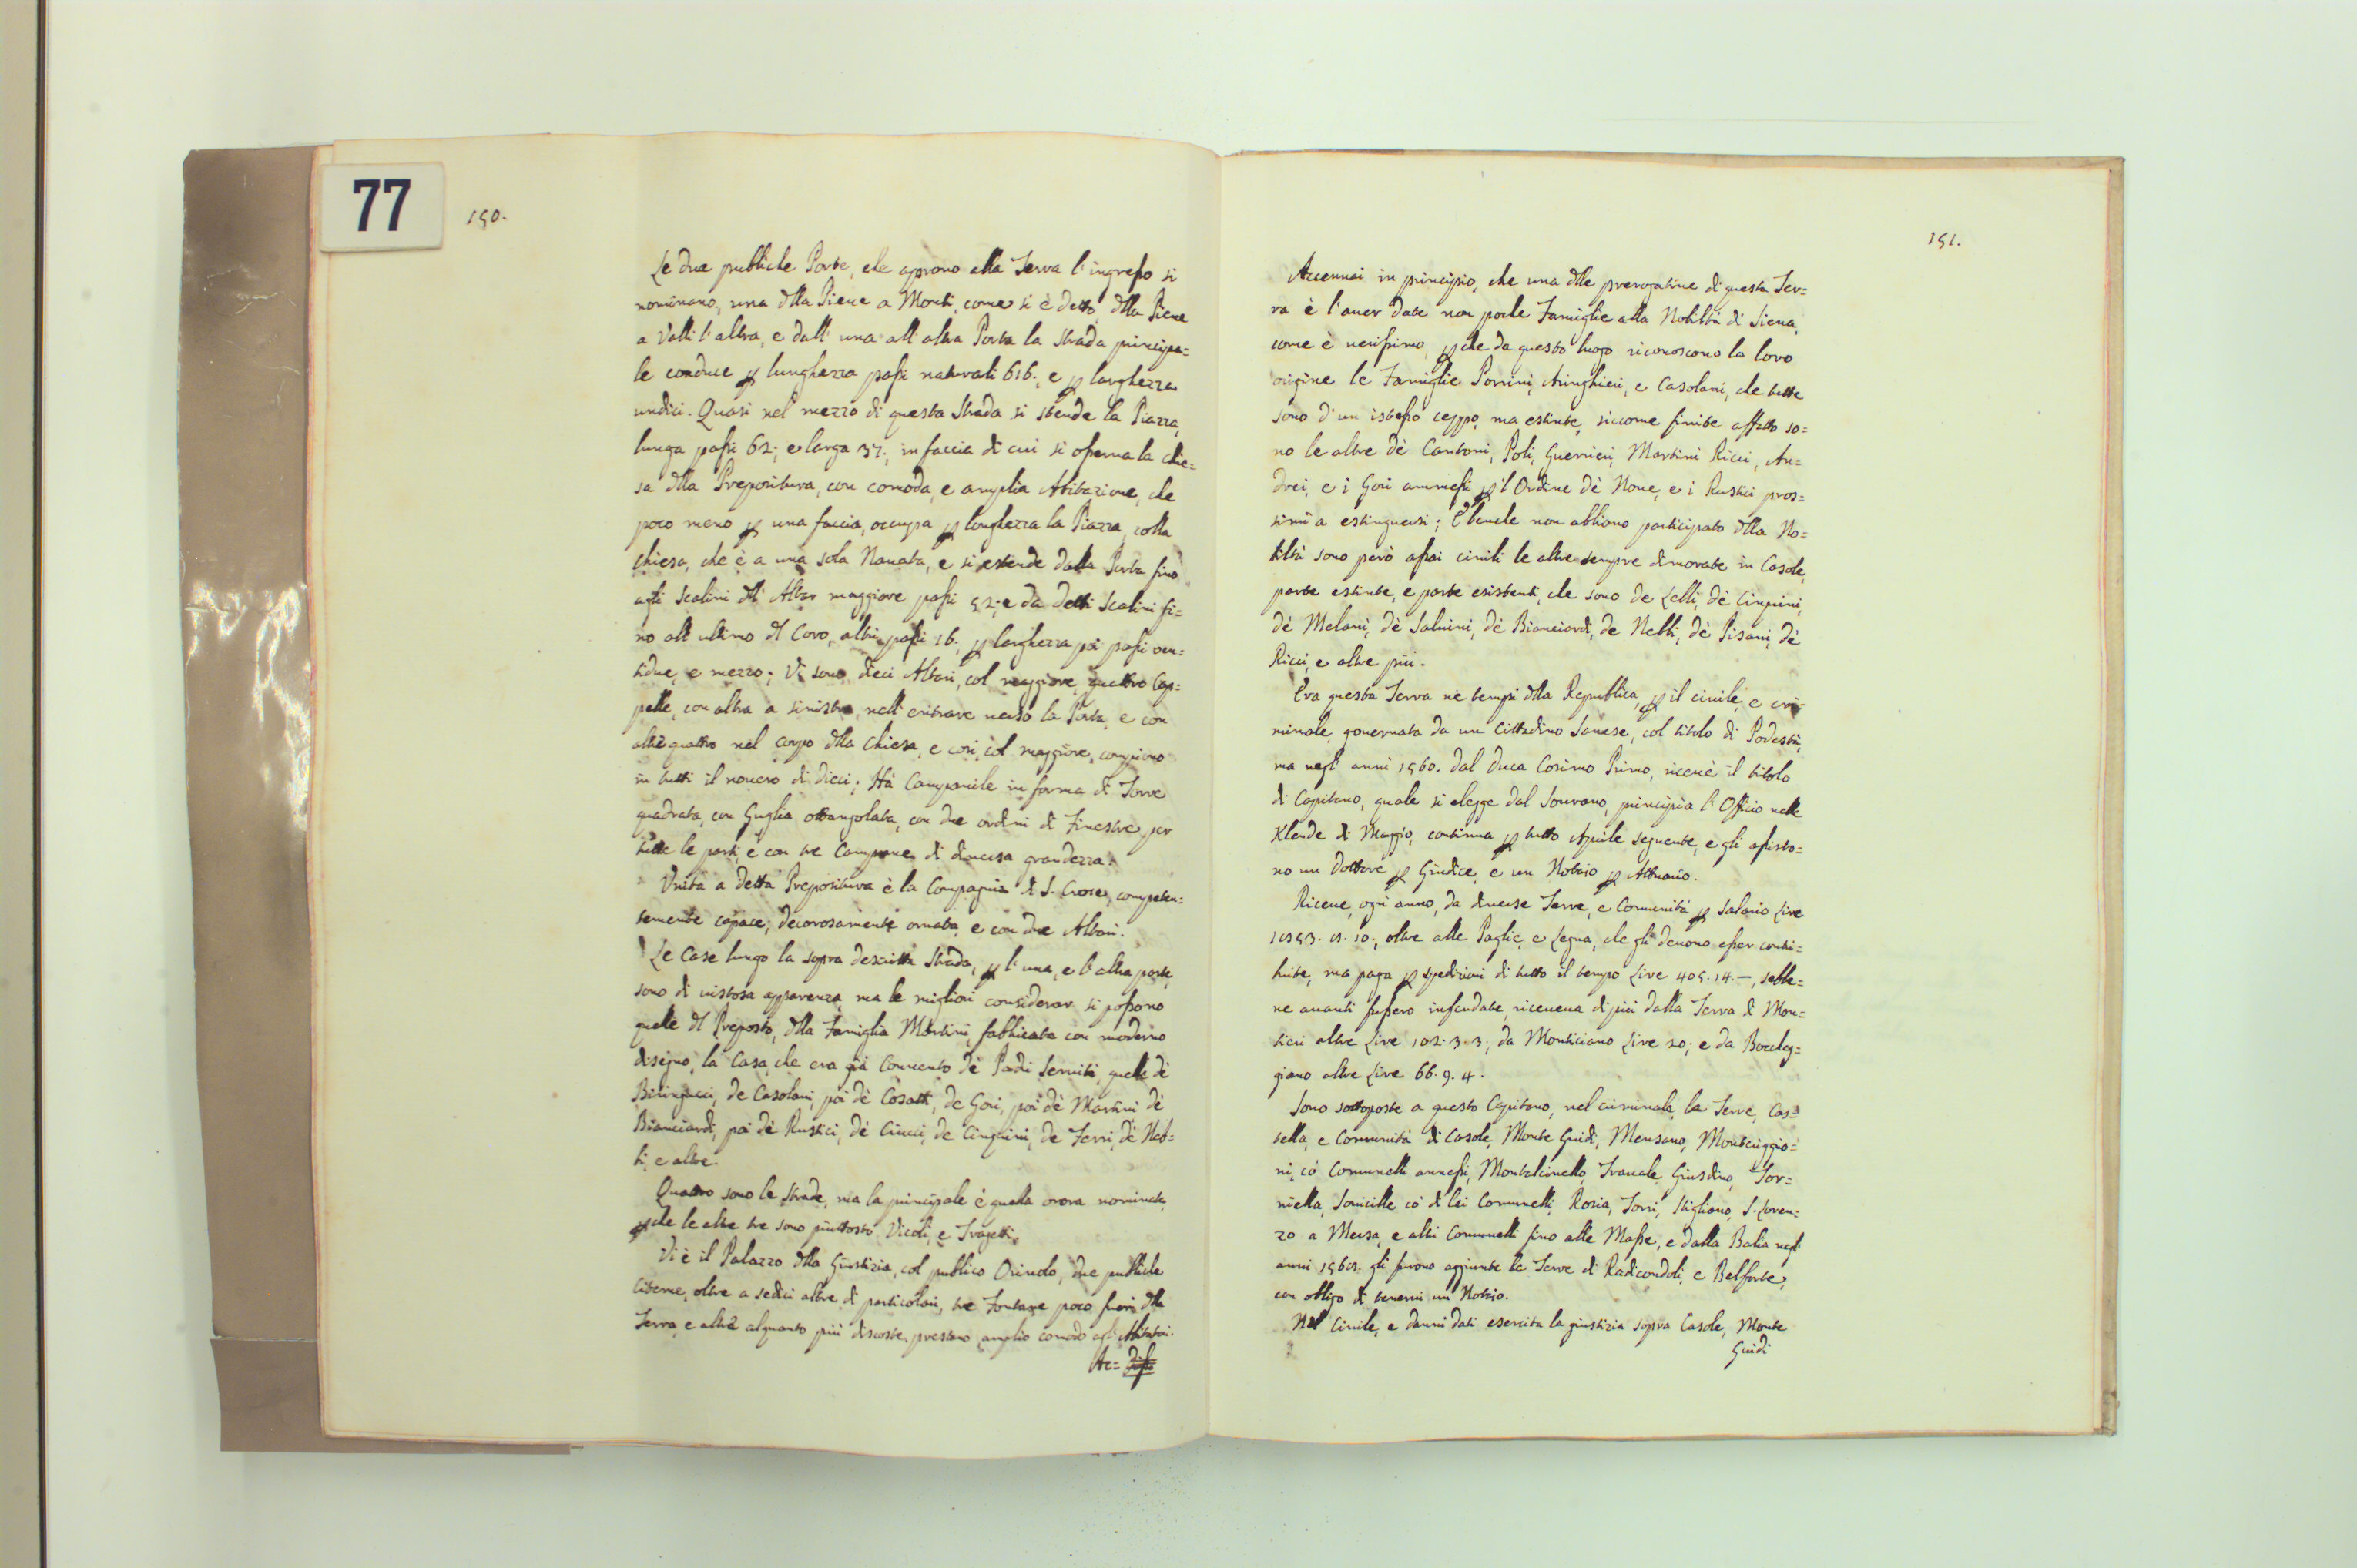 77
150.
Le due publiche Porte, che aprono alla Terra l'ingresso si
nominano, una dlla Pieue a Monti, come si è detto, dlla Pieue
a Valli l'altra, e dall'una all'altra Porta la Strada principa=
le conduce p lunghezza passi naturali 616. e p larghezza
undici. Quasi nel mezzo di questa Strada si stende la Piazza,
lunga passi 62; e larga 37; in faccia di cui si osserua la Chie=
sa dlla Prepositura, con comoda, e amplia Abitazione, che
poco meno p una faccia, occupa p longhezza la Piazza, colla
Chiesa, che è a una sola Nauata, e si estende dalla Porta fino
agli Scalini dll'Altar maggiore passi 52; e da detti Scalini fi=
no all'ultimo dl Coro, altri passi 16. p larghezza poi passi uen=
tidue, e mezzo; Vi sono dieci Altari, col maggiore, quattro Cap=
pelle, con altra a sinistra nell'entrare uerso la Porta, e con
altri quattro nel corpo dlla Chiesa, e cosi col maggiore, compiono
in tutti il nouero di dieci; Hà Campanile in forma di Torre
quadrata, con Guglia ottangolata, con due ordini di Finestre per
tutte le parti, e con tre Campane di diuersa grandezza.
Unita a detta Prepositura è la Compagnia di S. Croce, competen=
temente capace, decorosamente ornata, e con due Altari.
Le Case lungo la sopra descritta Strada, p l'una, e l'altra parte,
sono di uistosa apparenza, ma le migliori considerar si possono
quelle dl Preposto, dlla Famiglia Martini, fabbricata con moderno
disegno, la Casa, che era già Conuento dè Padri Seruiti, quelle dè
Biringucci, de Casolani, poi dè Cosatti, de Gori, poi dè Martini dè
Bianciardi, poi dè Rustici, dè Ciucci, de Cinquini, de Ferri, dè Nel=
li, e altre.
Quattro sono le Strade, ma la principale è quella orora nominata,
pche le altre tre sono piuttosto Vicoli, e Tragetti.
Vi è il Palazzo dlla Giustizia, col publico Oriuolo, due publiche
Citerne, oltre a sedici altre di particolari, tre Fontane poco fuori dlla
Terra, e altre alquanto più discoste, prestano amplio comodo agl'Abitatori.
Ac=
151.
Accennai in principio, che una dlle prerogatiue di questa Ter=
ra è l'auer date non poche Famiglie alla Nobiltà di Siena,
come è uerissimo, pche da questo luogo riconoscono la loro
origine le Famiglie Porrini, Aringhieri, e Casolani, che tutte
sono d'un istesso ceppo, ma estinte, siccome finite affatto so=
no le altre dè Cantoni, Poli, Guerrieri, Martini Ricci, An=
drei, e i Gori ammessi p l'Ordine dè Noue, e i Rustici pros=
simi a estinguersi; E benche non abbiano participato dlla No=
biltà sono però assai ciuili le altre sempre dimorate in Casole,
parte estinte, e parte esistenti, che sono de Lelli, dè Cinquini,
dè Melani, dè Saluini, dè Bianciardi, de Nelli, dè Pisani, dè
Ricci, e altre più.
Era questa Terra ne tempi dlla Republica, p il ciuile, e cri=
minale, gouernata da un Cittadino Sanese, col titolo di Podestà,
ma negl'anni 1560. dal Duca Cosimo Primo, riceuè il titolo
di Capitano, quale si elegge dal Sourano, principia l'Offizio nelle
Klende di Maggio, continua p tutto Aprile seguente, e gli assisto=
no un Dottore p Giudice, e un Notaio p Attuario.
Riceue, ogni anno, da diuerse Terre, e Comunità p Salario Lire
oltre alle Paglie, e Legna, che gli deuono esser contri=
buite, ma paga p spedizioni di tutto il tempo Lire 405. 14. —, sebbe=
ne auanti fussero infeudate, riceueua di più dalla Terra di Mon=
tieri altre Lire 102. 3. 3; da Monticiano Lire 20; e da Boccheg=
giano altre Lire 66. 9. 4.
Sono sottoposte a questo Capitano, nel criminale, le Terre, Cas=
tella, e Comunità di Casole, Monte Guidi, Mensano, Montereggio=
ni, cò Comunelli annessi, Montalcinello, Frauale, Giusdino, Tor=
niella, Souicille cò di lei Comunelli, Rosia, Torri, Stigliano, S. Loren=
zo a Mersa, e altri Comunelli fino alle Masse, e dalla Balia negl'
anni gli furono aggiunte le Terre di Radicondoli, e Belforte,
con obligo di tenerui un Notaio.
Nel Ciuile, e danni dati esercita la giustizia sopra Casole, Monte
Guidi